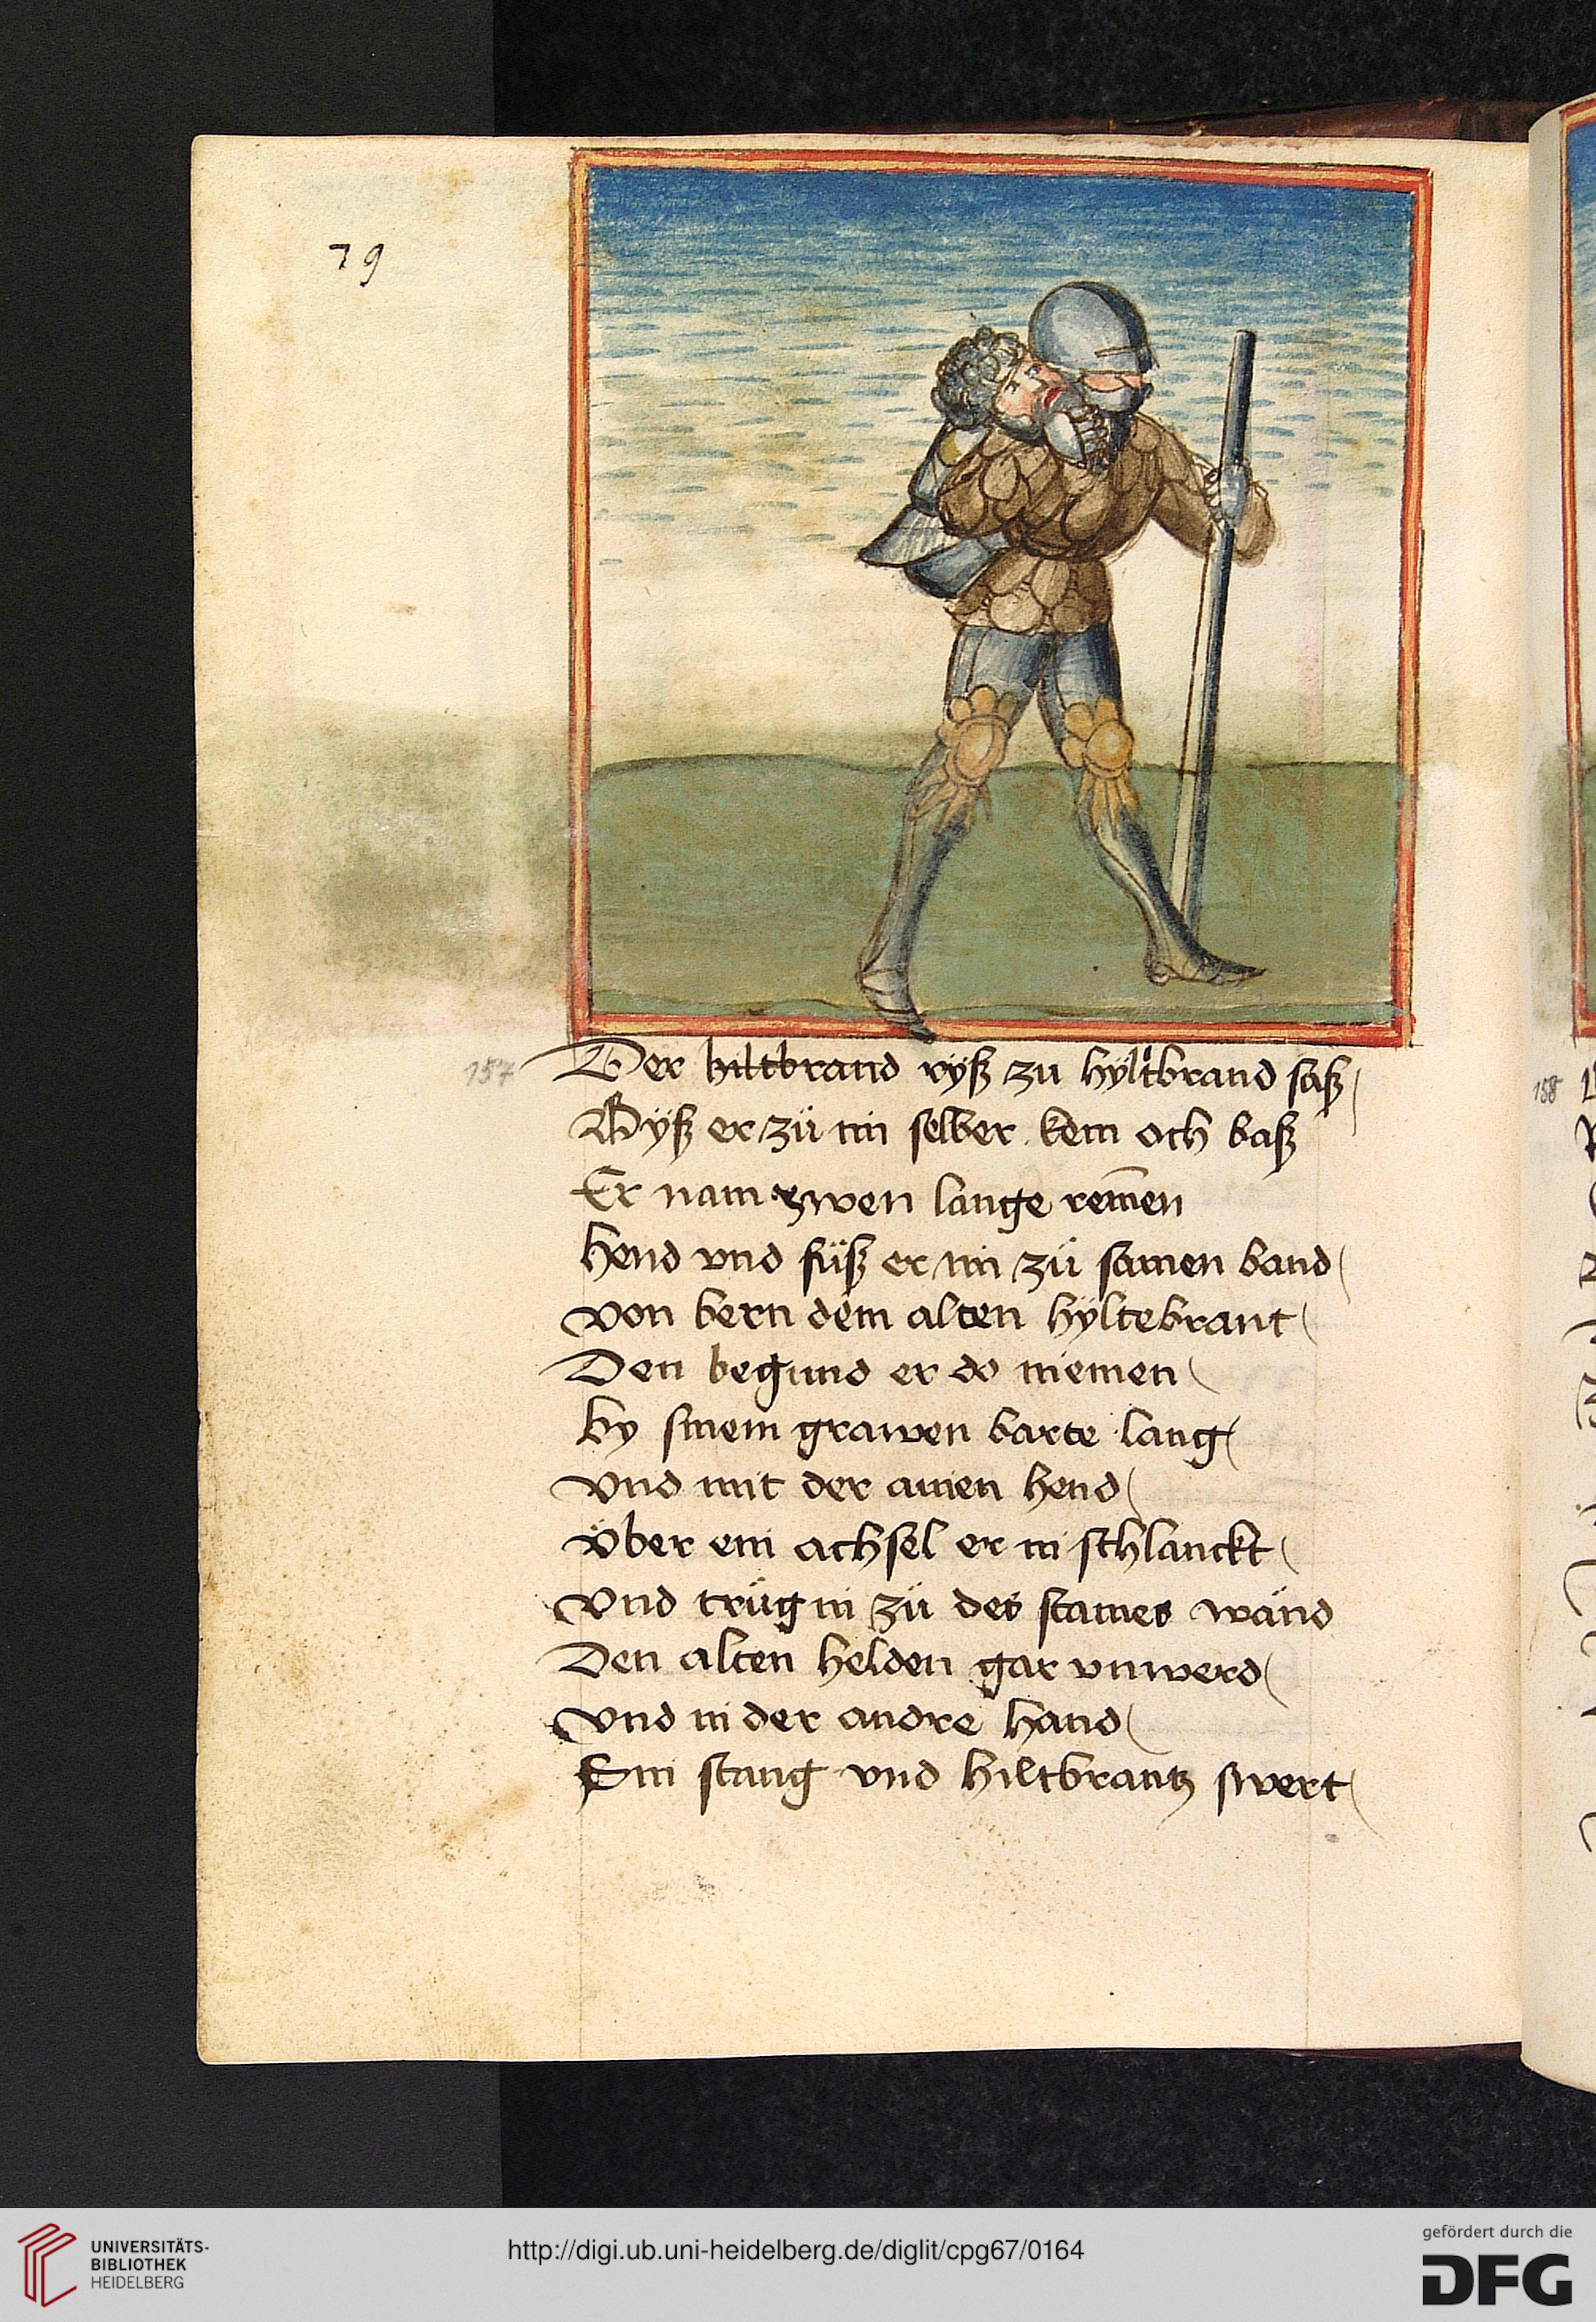 79
157
Der hiltbrand ryß zu hyltbrand saß
Byß er zü im selber kem och baß
Er nam zwen lange remen
hend vnd füß er im zü samen band
von bern dem alten hyltebrant
Den begund er do niemen
by sinem grawen barte lang
vnd mit der ainen hend
über ein achsel er in schlanckt
vnd trüg in zü des staines wänd
Den alten helden gar vnwerd
vnd in der andre hand
Ein stang vnd hiltbrantz swert
158
UNIVERSITÄTS-
BIBLIOTHEK
HEIDELBERG
http://digi.ub.uni-heidelberg.de/diglit/cpg67/0164
gefördert durch die
DFG